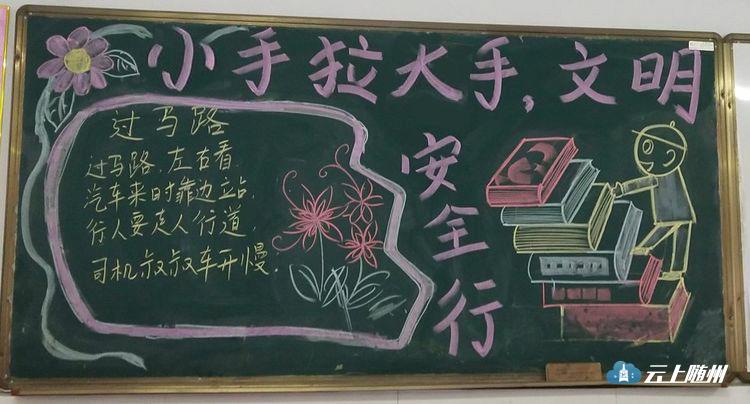 小手拉大手,文明
安全行
过马路
过马路,左右看,
汽车来时靠边站,
行人要走人行道,
司机叔叔车开慢。
云上随州